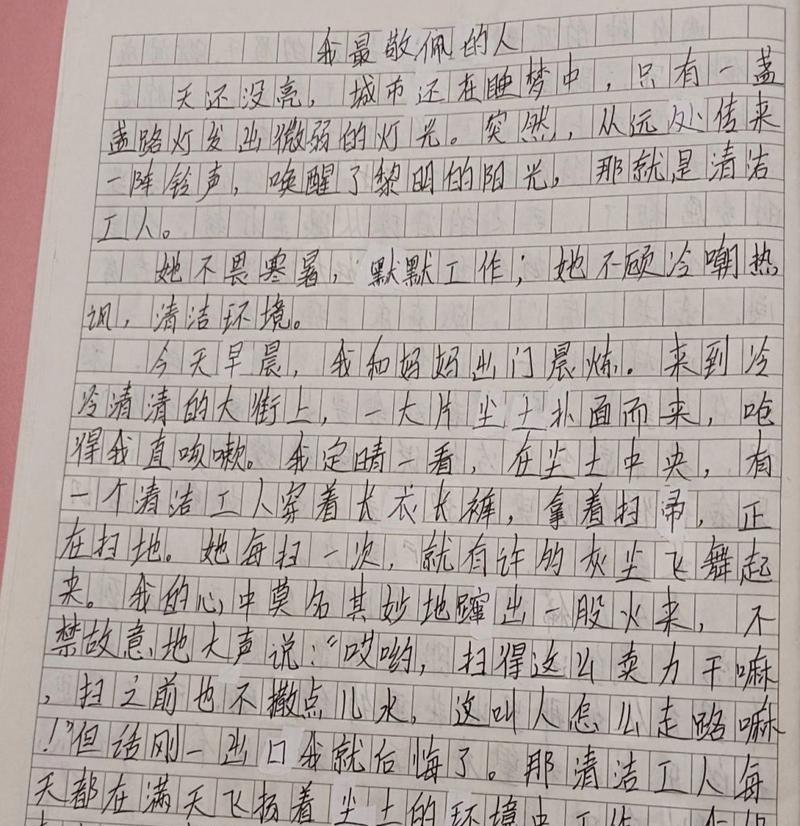 我最敬佩的人
天还没亮，城市还在睡梦中，只有一盏
盏路灯发出微弱的灯光。突然，从远处传来
一阵铃声，唤醒了黎明的阳光，那就是清洁
工人。
她不畏寒暑，默默工作；她不顾冷嘲热
讽，清洁环境。
今天早晨，我和妈妈出门晨炼。来到冷
冷清清的大街上，一大片尘土扑面而来，呛
得我直咳嗽。我定睛一看，在尘土中央，有
一个清洁工人穿着长衣长裤，拿着扫帚，正
在扫地。她每扫一次，就有许的灰尘飞舞起
来。我的心中莫名其妙地蹿出一股火来，不
禁故意地大声说：“哎哟，扫得这么卖力干嘛
，扫之前也不撒点儿水，这叫人怎么走路嘛
！”但话刚一出口我就后悔了。那清洁工人每
天都在满天飞扬着尘土的环境中工作